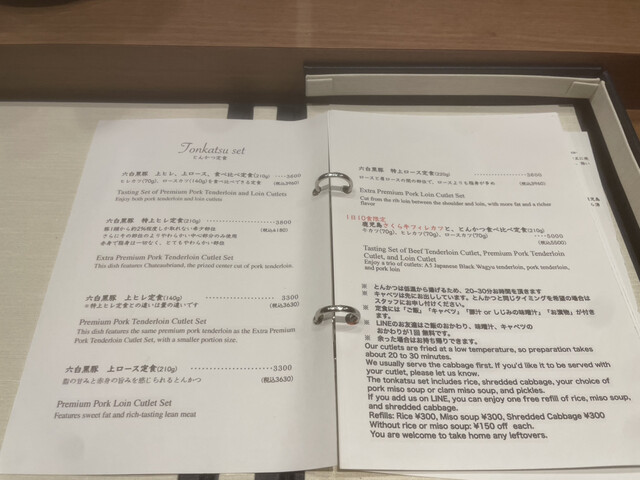 Tonkatsu set
とんかつ定食
六白黒豚 上ヒレ、上ロース、食べ比べ定食(210g) ····3630
ヒレカツ(70g)、ロースカツ(140g)を食べ比べできる定食
Tasting Set of Premium Pork Tenderloin and Loin Cutlets
Enjoy both pork tenderloin and loin cutlets
六白黒豚 特上ヒレ定食(210g) ····3800
(税込4180)
Extra Premium Pork Tenderloin Cutlet Set
This dish features Chateaubriand, the prized center cut of pork tenderloin.
六白黒豚 上ヒレ定食(140g) 3300
※特上ヒレ定食との違いは量の違いです (税込3630)
Premium Pork Tenderloin Cutlet Set
This dish features the same premium pork tenderloin as the Extra Premium
Pork Tenderloin Cutlet Set, with a smaller portion size.
六白黒豚 上ロース定食(210g) ····3300
脂の甘みと赤身の旨みを感じられるとんかつ (税込3630)
Premium Pork Loin Cutlet Set
Features sweet fat and rich-tasting lean meat
六白黒豚 特上ロース定食(220g) ····3600
(税込3960)
Extra Premium Pork Loin Cutlet Set
Cut from the rib loin between the shoulder and loin, with more fat and a richer
flavor
1日10食限定
鹿児島さくら牛フィレカツと、とんかつ食べ比べ定食(210g)
牛カツ(70g)、ヒレカツ(70g)、ロースカツ(70g) ····5000
(税込5500)
Tasting Set of Beef Tenderloin Cutlet, Premium Pork Tenderloin
Cutlet, and Loin Cutlet
Enjoy a trio of cutlets: A1 Japanese Black Wagyu tenderloin, pork tenderloin,
and pork loin
※ とんかつは低温から揚げるため、20–30分お時間を頂きます
※ キャベツは先にお出ししています。とんかつと同じタイミングを希望の場合は
スタッフにお申し付けください。
※ 定食には「ご飯」「キャベツ」「豚汁 or しじみの味噌汁」「お漬物」が付き
ます。
※ LINEのお友達はご飯のおかわり、味噌汁、キャベツの
おかわりが1回 無料です。
※ 余った場合はお持ち帰りできます
Our cutlets are fried at a low temperature, so preparation takes
about 20 to 30 minutes.
We usually serve the cabbage first. If you'd like it to be served with
your cutlet, please let us know.
The tonkatsu set includes rice, shredded cabbage, your choice of
pork miso soup or clam miso soup, and pickles.
If you add us on LINE, you can enjoy one free refill of rice, miso soup,
and shredded cabbage.
Refills: Rice ¥300, Miso soup ¥300, Shredded Cabbage ¥300
Without rice or miso soup: ¥150 off each.
You are welcome to take home any leftovers.